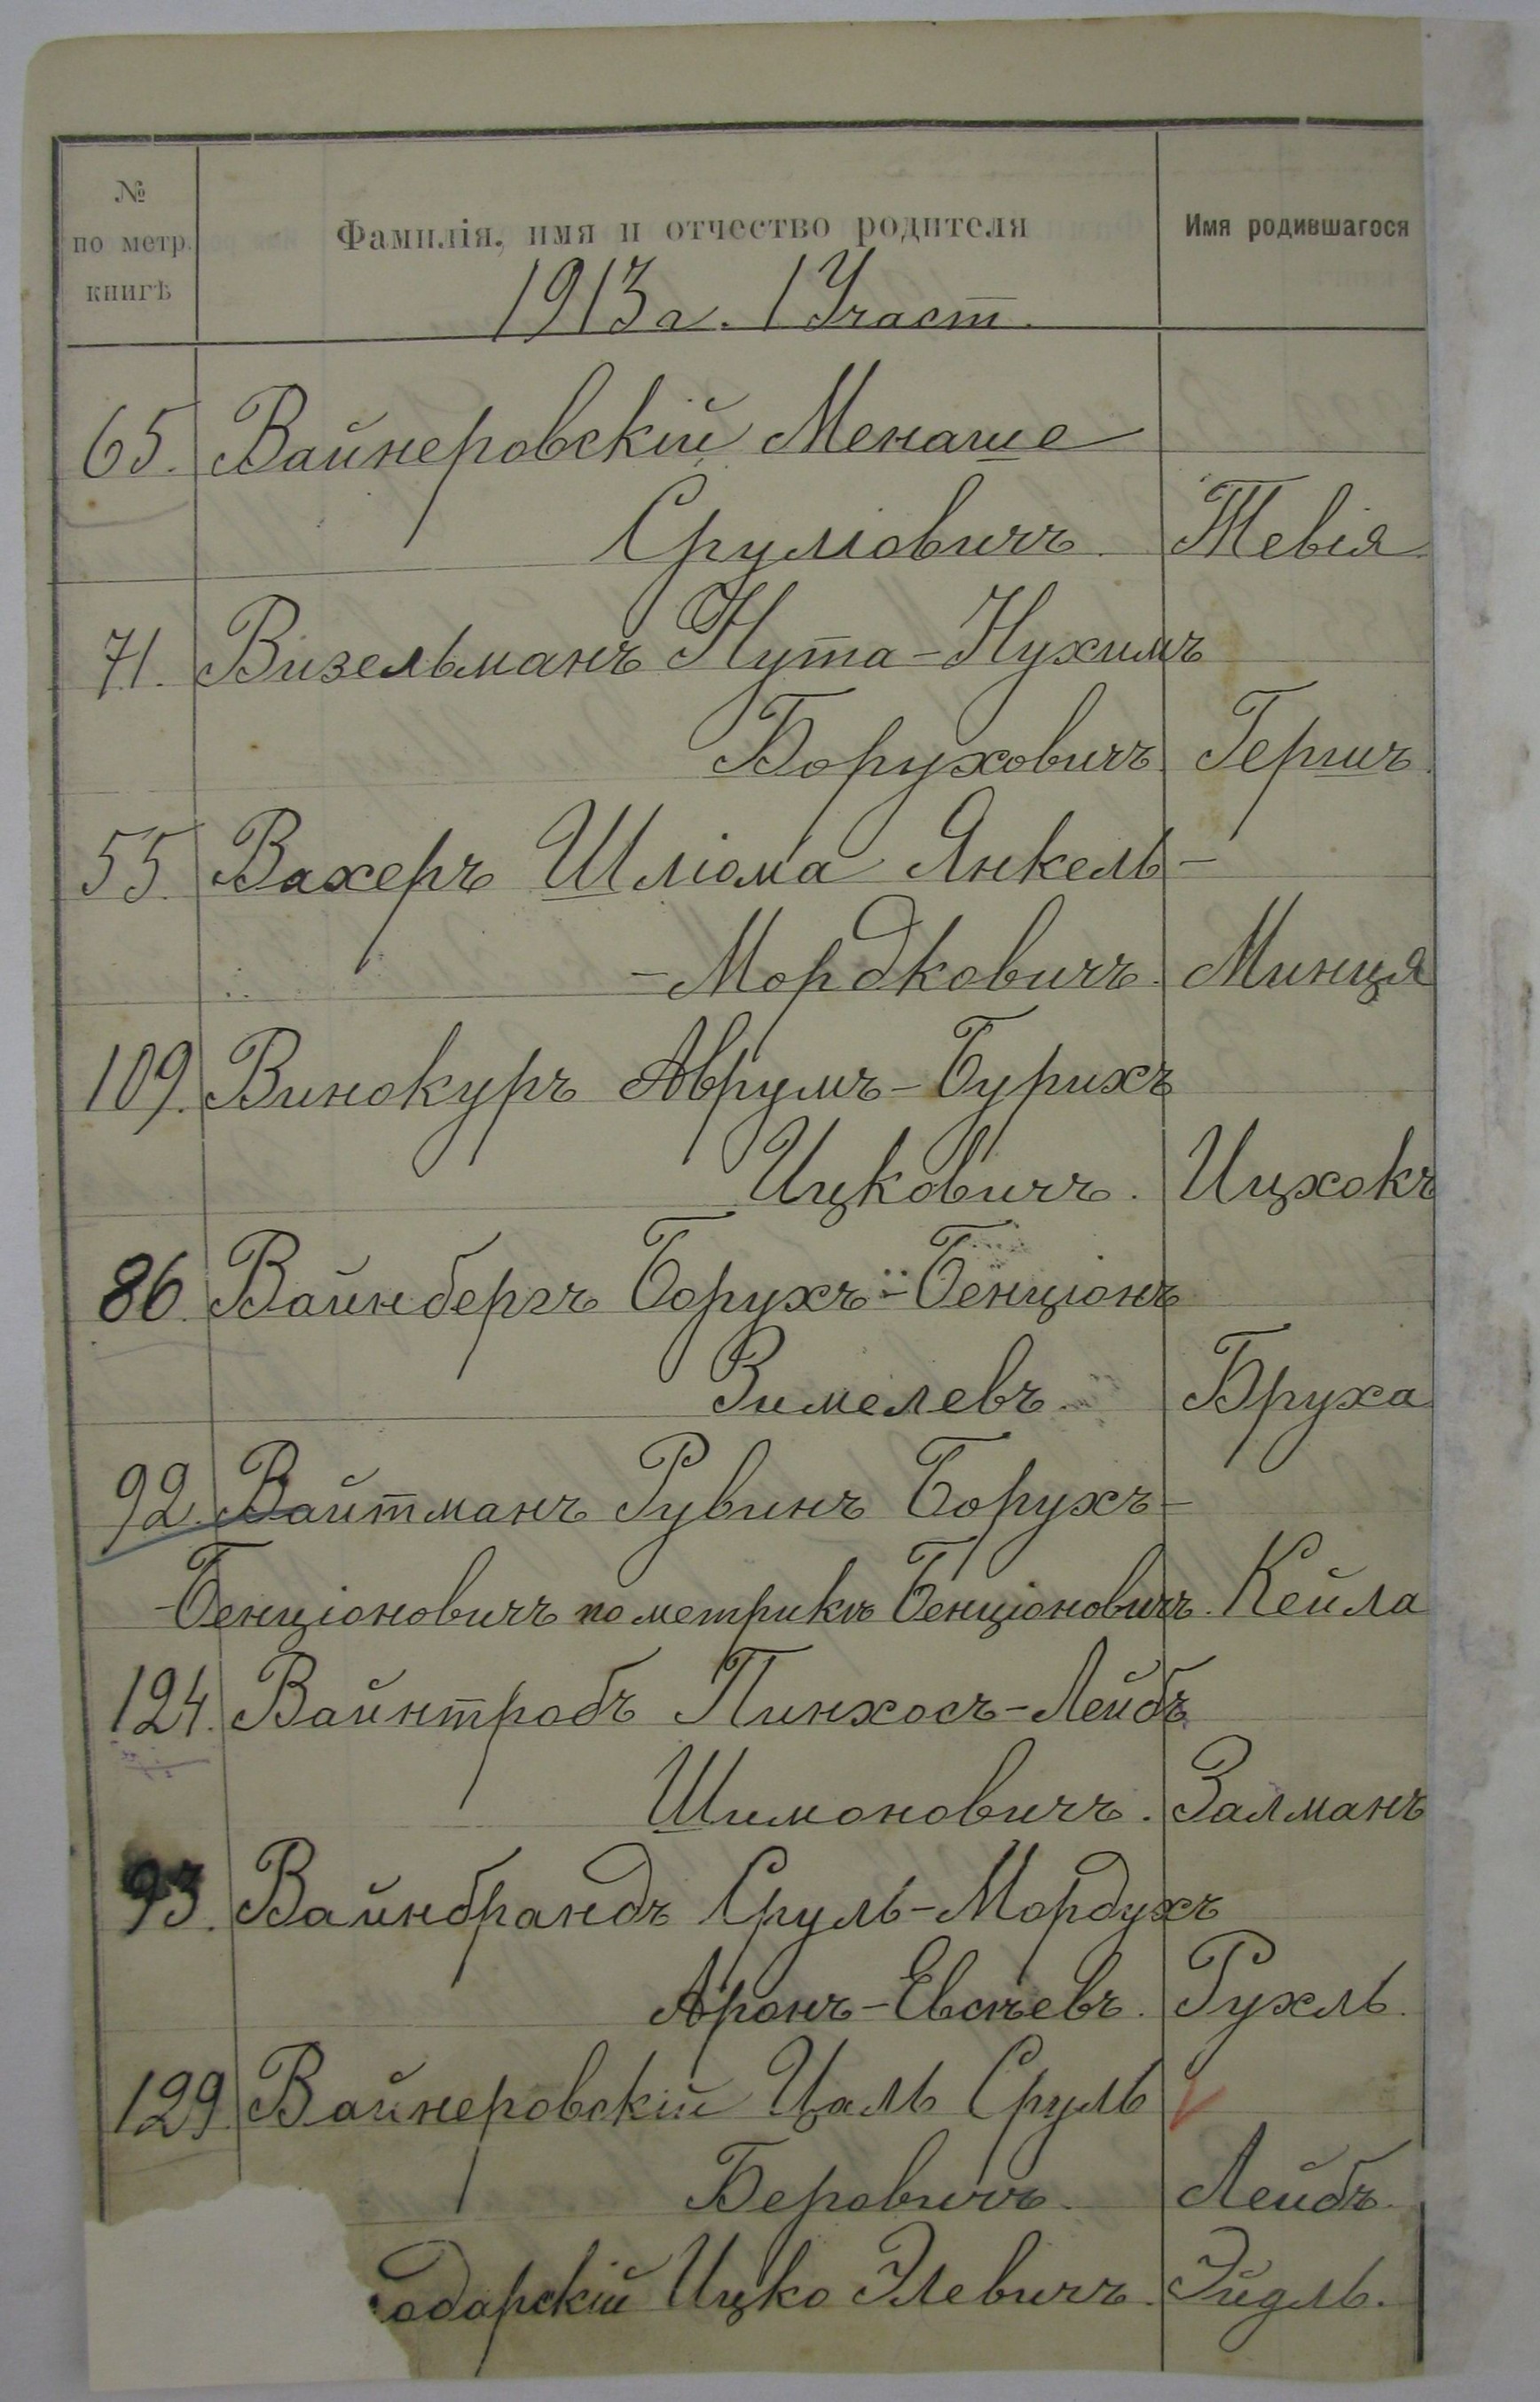 № по метр. книгѣ
Фамилія, имя и отчество родителя
Имя родившагося
1913 г. 1 Участ.
65. Вайнеровскій Менаше
Сруліовичъ. Тевія
71. Визельманъ Нута-Нухимъ
Боруховичъ Гершъ.
55. Вахеръ Шліома Янкель-
-Мордковичъ. Минця
109. Винокуръ Аврумъ-Бурихъ
Ицковичъ. Ицхокъ
86. Вайнбергъ Борухъ-Бенціонъ
Зимелевъ Бруха
92. Вайтманъ Рувинъ Борухъ-
-Бенціоновичъ по метрикѣ Бенціоновичъ. Кейла
124. Вайнтробъ Пинхосъ-Лейбъ
Шимоновичъ. Залманъ
93. Вайнбрандъ Сруль-Мордухъ
Аронъ-Евсѣевъ. Рухль.
129 Вайнеровскій Цаль Сруль
Беровичъ. Лейбъ.
одарскій Ицко Элевичъ. Эйдль.